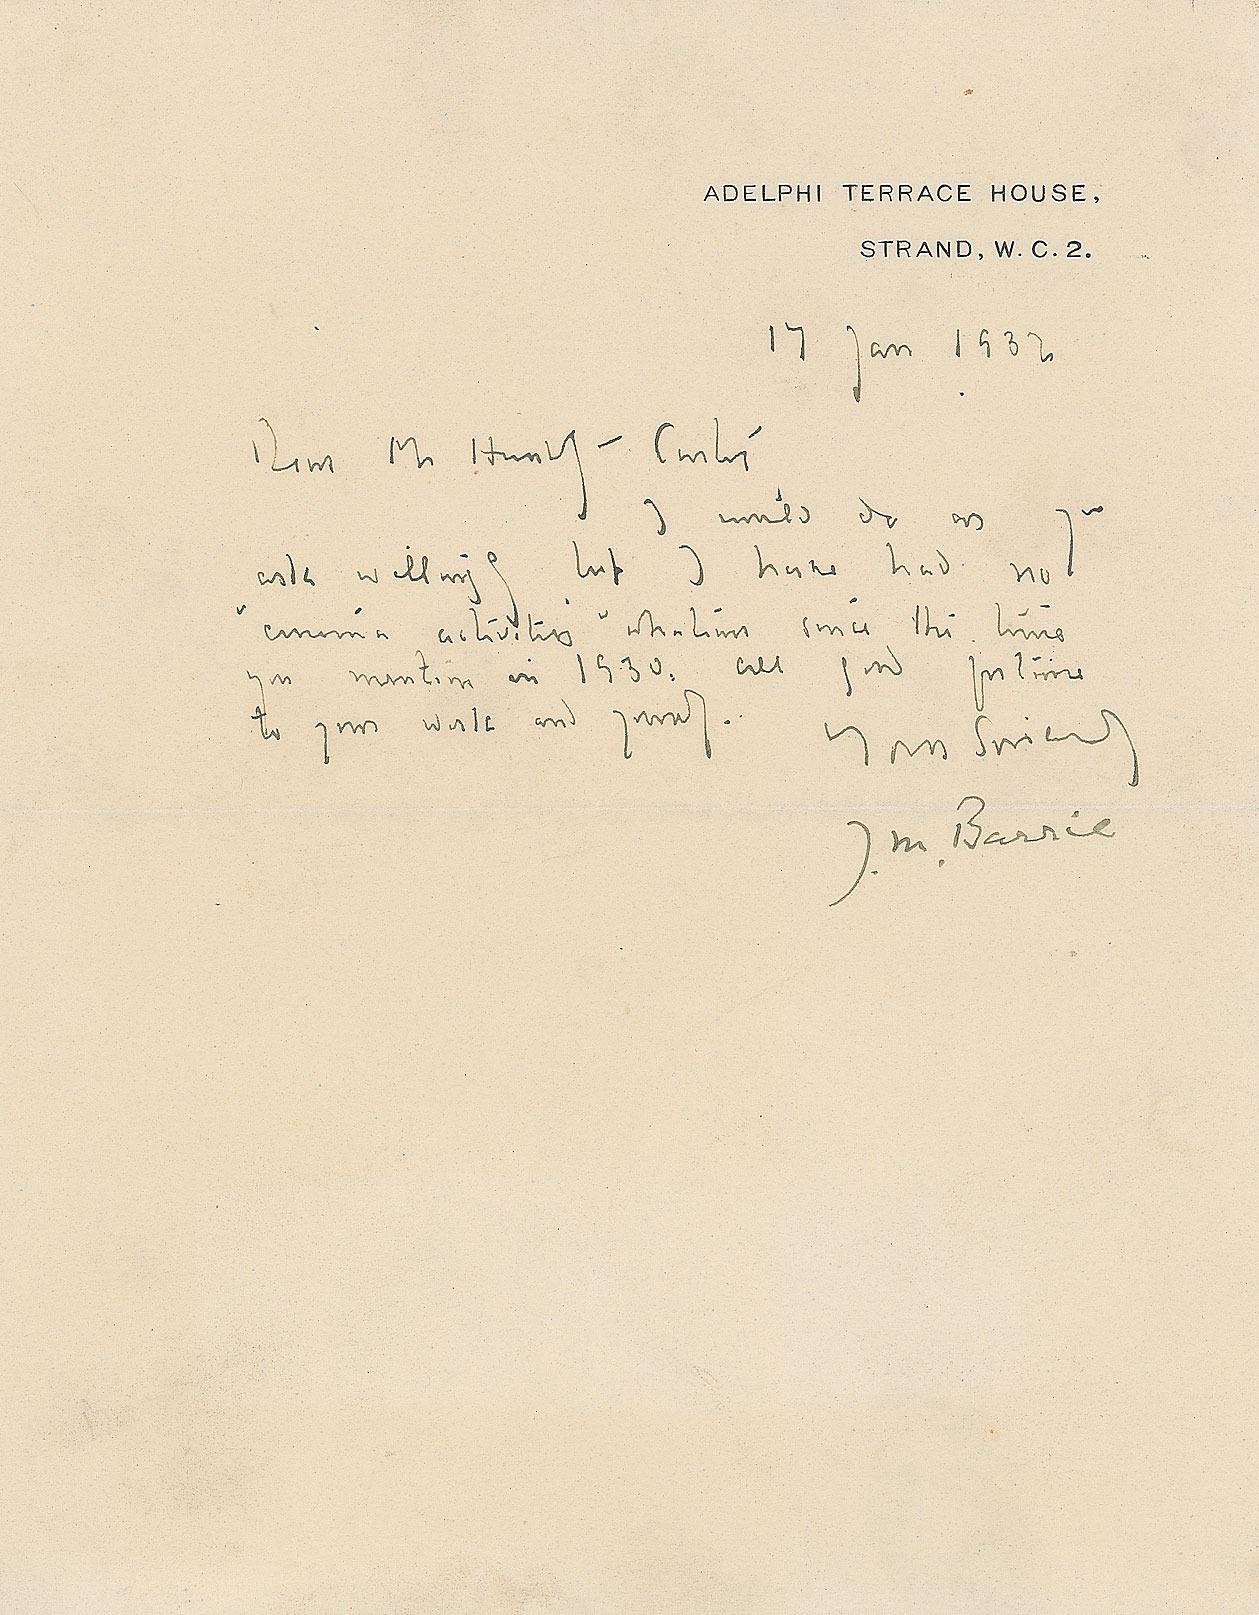 ADELPHI TERRACE HOUSE,
STRAND, W.C.2.
17 Jan 1932
Dear Mr Huntly-Carter
I would do as you
ask willingly but I have had no
"cinema activities" whatever since the time
you mention in 1930. All good fortune
to your work and yourself.
Yours Sincerely
J.M. Barrie